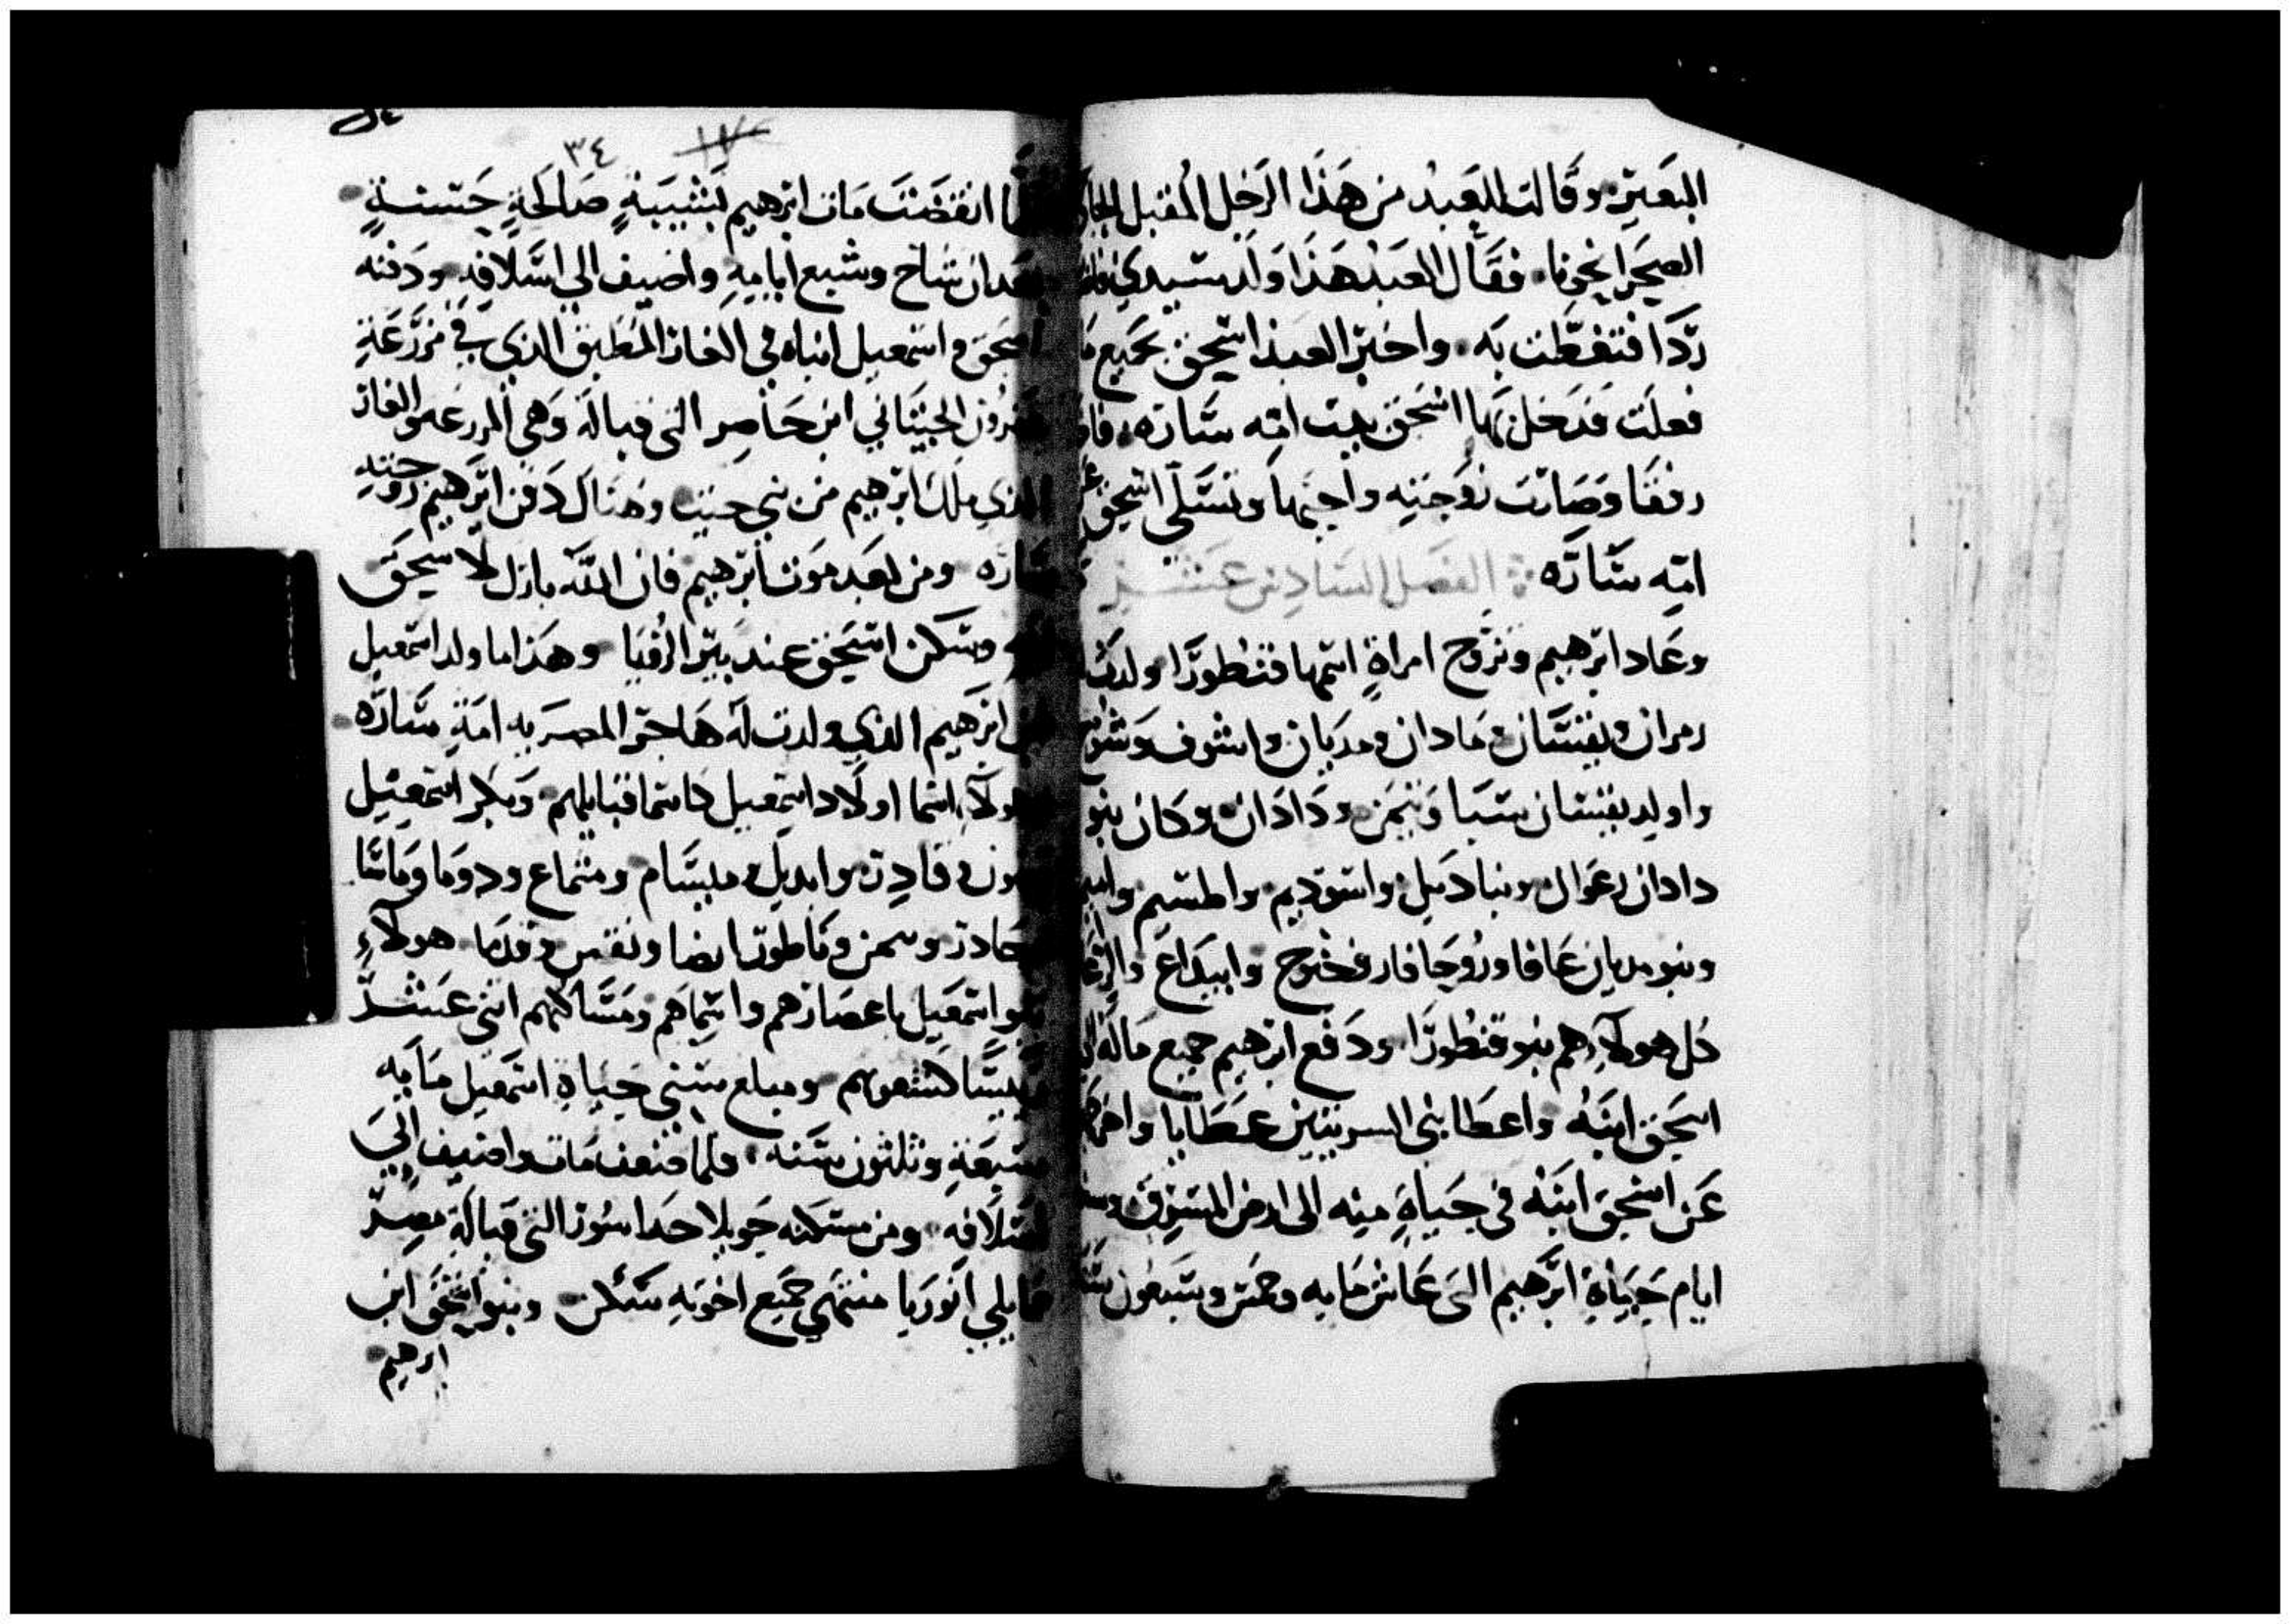 البعير وقالت للعبد من هذا الرجل المقبل
الصحرا نحونا فقال العبد هذا ولد سيدي
ردا فتغطت به واخبر العبد اسحق بجميع ما
فعلت فدخل بها اسحق بيت امه ساره
رفقا وصارت زوجته واحبها وتسلى اسحق
امه ساره الفصل السادس عشر
وعاد ابرهيم وتزوج امراة اسمها قنطورا ولدت
زمران ويقسان ومادان ومديان واشوف
واولد يقسان سبا وتيمن ودادان وكان بنو
دادان رعوال ونبادييل واسوديم واطسيم
وبنو مديان عافا وروحافار وخنوح وابيداع
كل هولاء هم بنو قنطورا ودفع ابرهيم جميع ماله
اسحق ابنه واعطا بني السريتين عطايا
عن اسحق ابنه في حياة منه الى ارض المشرق
ايام حيياة ابرهيم التي عاش مايه وخمس وسبعون
٣٤ ١٧
انقضت مات ابرهيم بشيبة صالحة حسنة
بعد ان شاخ وشبع ايامه واضيف الي اسلافه ودفنه
اسحق واسمعيل ابناه في الغار المطبق الذي في مزرعة
الحيتاني ابن حاصر التي قبالة وهي المزرعه والغار
الذي ملك ابرهيم من بني حيت وهناك دفن ابرهيم زوجته
ساره ومن بعد موت ابرهيم فان الله بارك لاسحق
وسكن اسحق عند بير الرؤيا وهذا ما ولد اسمعيل
ابن ابرهيم الذي ولدت له هاجر المصريه امة ساره
هولاء اسما اولاد اسمعيل كاسما قبايلهم وبكر اسمعيل
وقادر وابديل ومبسام ومشماع ودوما وماسا
وحادر ويمن وياطور ايضا ونفس وقدما هولاء
بنو اسمعيل باعصارهم واسماهم ومساكنهم اثنى عشر
رييسا لشعوبهم ومبلغ سني حياة اسمعيل مايه
سبعة وثلثون سنه فلما ضعف مات واضيف الى
اسلافه ومن مسكنه حويلا حدا سور التي قبالة مصر
مايلي اثوريا منتهي جميع اخوته سكن وبنو اسحق ابن
ابرهيم